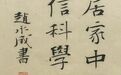 居家中
信科學
趙永成書